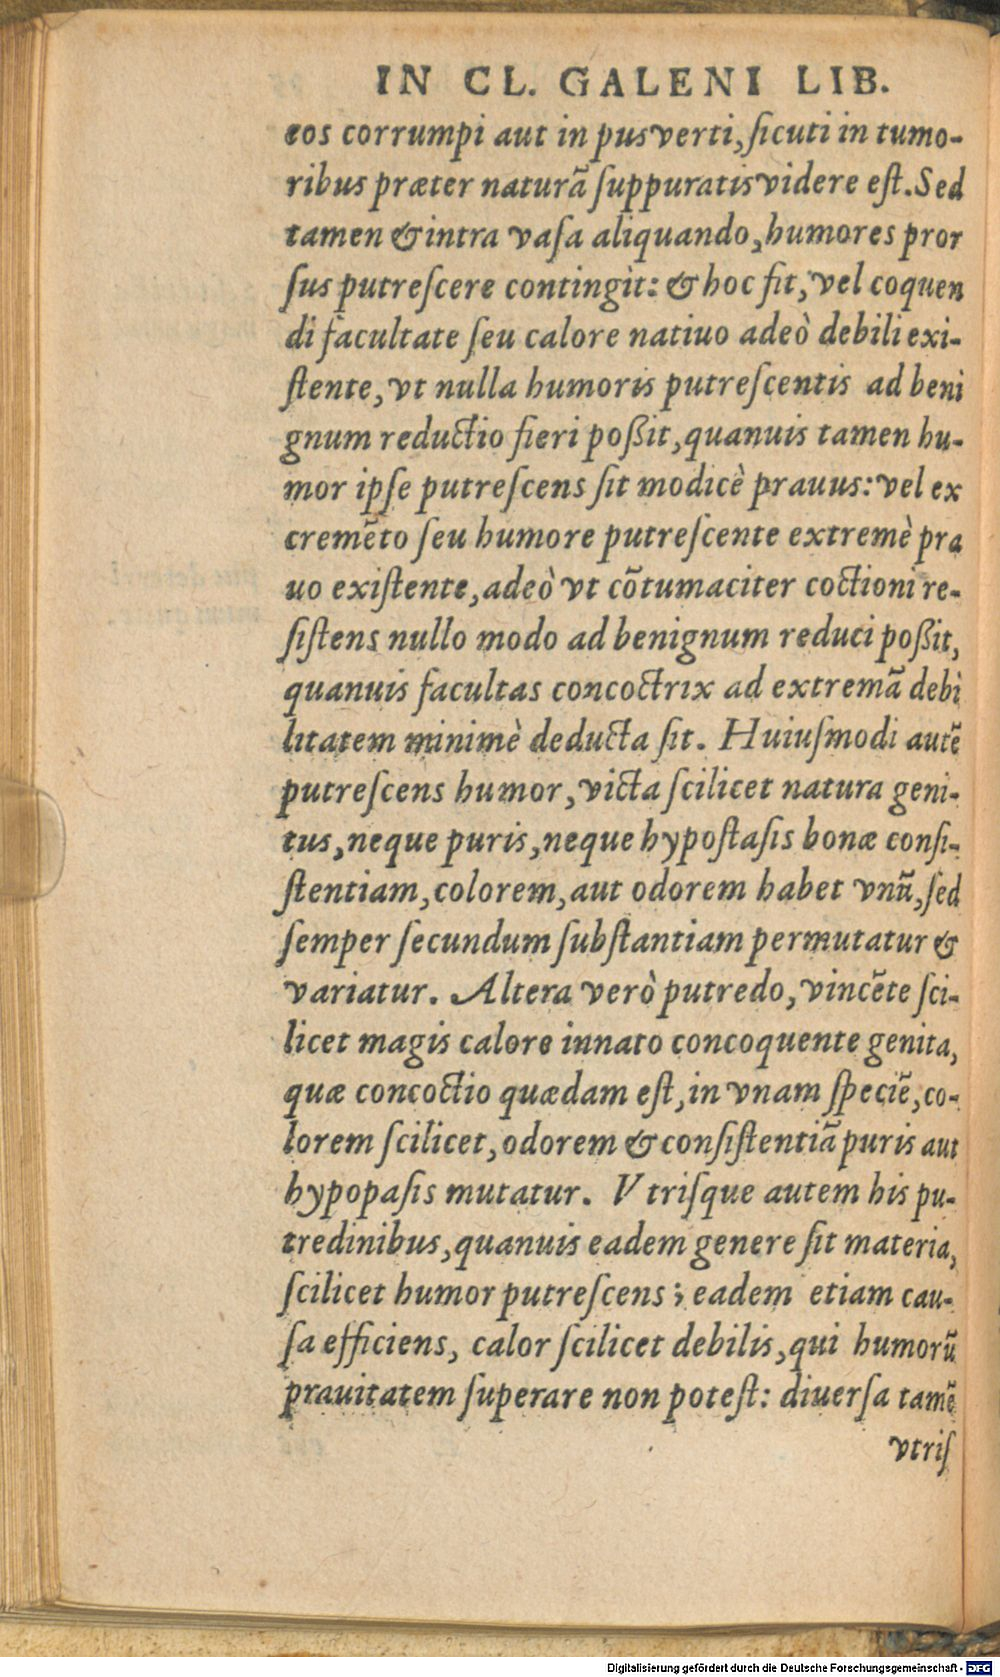 IN CL. GALENI LIB.
eos corrumpi aut in pus verti, sicuti in tumo-
ribus præter naturã suppuratis videre est. Sed
tamen & intra vasa aliquando, humores pror
sus putrescere contingit: & hoc fit, vel coquen
di facultate seu calore natiuo adeò debili exi-
stente, vt nulla humoris putrescentis ad beni
gnum reductio fieri poßit, quanuis tamen hu-
mor ipse putrescens sit modicè prauus: vel ex
cremẽto seu humore putrescente extremè pra
uo existente, adeò vt cõtumaciter coctioni re-
sistens nullo modo ad benignum reduci poßit,
quanuis facultas concoctrix ad extremã debi
litatem minimè deducta sit. Huiusmodi autẽ
putrescens humor, victa scilicet natura geni-
tus, neque puris, neque hypostasis bonæ consi-
stentiam, colorem, aut odorem habet vnũ, sed
semper secundum substantiam permutatur &
variatur. Altera verò putredo, vincẽte sci-
licet magis calore innato concoquente genita,
quæ concoctio quædam est, in vnam speciẽ, co-
lorem scilicet, odorem & consistentiã puris aut
hypopasis mutatur. Vtrisque autem his pu-
tredinibus, quanuis eadem genere sit materia,
scilicet humor putrescens; eadem etiam cau-
sa efficiens, calor scilicet debilis, qui humorũ
prauitatem superare non potest: diuersa tamẽ
vtris
Digitalisierung gefördert durch die Deutsche Forschungsgemeinschaft - DFG